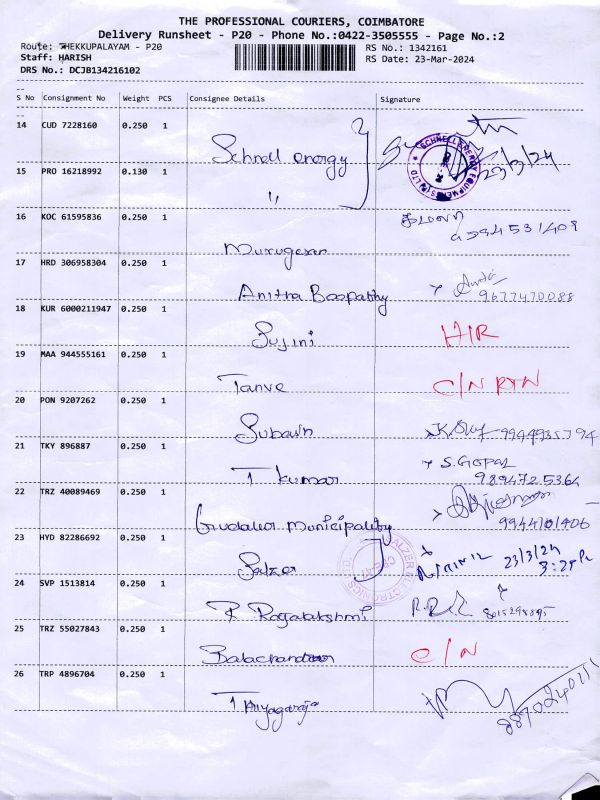 THE PROFESSIONAL COURIERS, COIMBATORE
Delivery Runsheet - P20 - Phone No.:0422-3505555 - Page No.:2
Route: THEKKUPALAYAM - P20 RS No.: 1342161
Staff: HARISH RS Date: 23-Mar-2024
DRS No.: DCJB134216102
S No Consignment No Weight PCS Consignee Details Signature
14 CUD 7228160 0.250 1 Schnell energy 23/3/24
15 PRO 16218992 0.130 1 "
16 KOC 61595836 0.250 1 Murugesan
17 HRD 306958304 0.250 1 Anitha Boopathy 9677470088
18 KUR 6000211947 0.250 1 Sujini H/R
19 MAA 944555161 0.250 1 Tanve C/N RTN
20 PON 9207262 0.250 1 Subash
21 TKY 896887 0.250 1 T kumar S.GOPAL
9894725364
22 TRZ 40089469 0.250 1 Gudalur municipality
9944101406
23 HYD 82286692 0.250 1 Salzer 23/3/24
24 SVP 1513814 0.250 1 R Rajalakshmi
25 TRZ 55027843 0.250 1 Balachandran C/N
26 TRP 4896704 0.250 1 Thiyagaraja